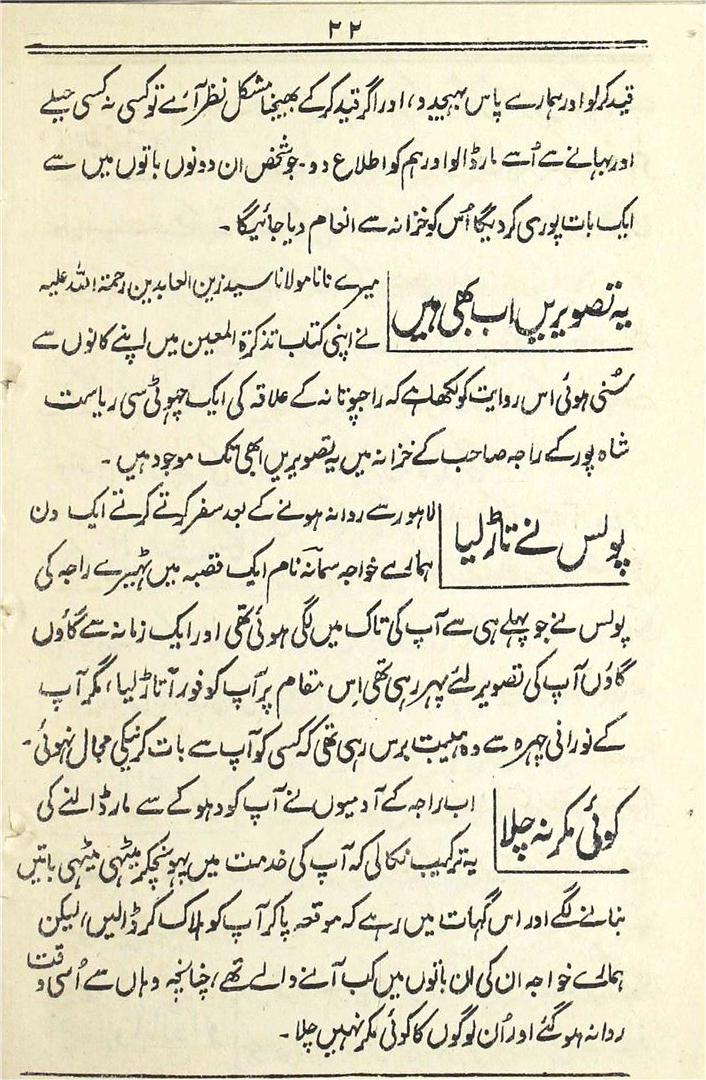 ۲۲
قید کرلو اور ہمارے پاس بھیجدو، اور اگر قید کرکے بھیجنا مشکل نظر آئے تو کسی نہ کسی حیلے
اور بہانے سے اُسے مار ڈالو اور ہم کو اطلاع دو۔ جو شخص ان دونوں باتوں میں سے
ایک بات پوری کر دیگا اُس کو خزانہ سے انعام دیا جائیگا۔
یہ تصویریں اب بھی ہیں
میرے نانا مولانا سید زین العابدین رحمۃ اللہ علیہ
نے اپنی کتاب تذکرۃ المعین میں اپنے کانوں سے
سُنی ہوئی اس روایت کو لکھا ہے کہ راجپوتانہ کے علاقہ کی ایک چہوٹی سی ریاست
شاہ پور کے راجہ صاحب کے خزانہ میں یہ تصویریں ابھی تک موجود ہیں۔
پولس نے تاڑ لیا
لاہور سے روانہ ہونے کے بعد سفر کرتے کرتے ایک دن
ہمارے خواجہ سمانہ نام ایک قصبہ میں ٹہیرے راجہ کی
پولس نے جو پہلے ہی سے آپ کی تاک میں لگی ہوئی تھی اور ایک زمانہ سے گاؤں
گاؤں آپ کی تصویر لئے پہر رہی تھی اِس مقام پر آپ کو فوراً تاڑ لیا، مگر آپ
کے نورانی چہرہ سے وہ ہیبت برس رہی تھی کہ کسی کو آپ سے بات کرنیکی مجال نہوئی۔
کوئی مکر نہ چلا
اب راجہ کے آدمیوں نے آپ کو دہوکے سے مار ڈالنے کی
یہ ترکیب نکالی کہ آپ کی خدمت میں پہونچکر میٹھی میٹھی باتیں
بنانے لگے اور اس گہات میں رہے کہ موقعہ پا کر آپ کو ہلاک کر ڈالیں، لیکن
ہمارے خواجہ ان کی ان باتوں میں کب آنے والے تھے، چنانچہ وہاں سے اُسی وقت
روانہ ہو گئے اور اُن لوگوں کا کوئی مکر نہیں چلا۔